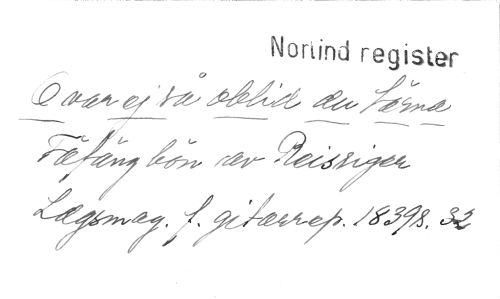 Norlind register
O var ej så oblid du tärna
Fåfäng bön av Reissiger
Lagsmag. f. gitarrsp. 1839 s. 32